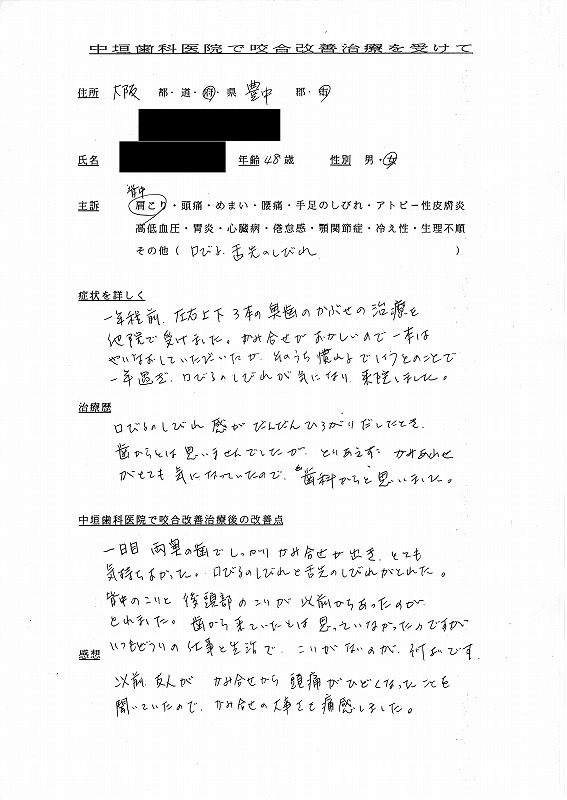 中垣歯科医院で咬合改善治療を受けて
住所 大阪 都・道・府・県 豊中 郡・市
氏名 年齢 48歳 性別 男・女
背中
主訴 肩こり・頭痛・めまい・腰痛・手足のしびれ・アトピー性皮膚炎
高低血圧・胃炎・心臓病・倦怠感・顎関節症・冷え性・生理不順
その他( 口びる、舌先のしびれ )
症状を詳しく
一年程前、左右上下3本の奥歯のかぶせの治療を
他院で受けました。かみ合せがおかしいので一本は
やりなおしていただいたが、そのうち慣れるでしょうとのことで
一年過ぎ、口びるのしびれが気になり、来院しました。
治療歴
口びるのしびれ感がだんだんひろがりだしたとき、
歯からとは思いませんでしたが、とりあえず かみあわせ
がとても気になっていたので、歯科からと思いました。
中垣歯科医院で咬合改善治療後の改善点
一日目 両奥の歯でしっかりかみ合せが出き、とても
気持ちよかった。口びるのしびれと舌先のしびれがとれた。
背中のこりと後頭部のこりが以前からあったのが、
とれました。歯から来ていたとは思っていなかったのですが
いつもどうりの仕事と生活で、こりがないのが、不思議です。
感想
以前、友人が かみ合せから頭痛がひどくなったことを
聞いていたので、かみ合せの大事さを痛感しました。